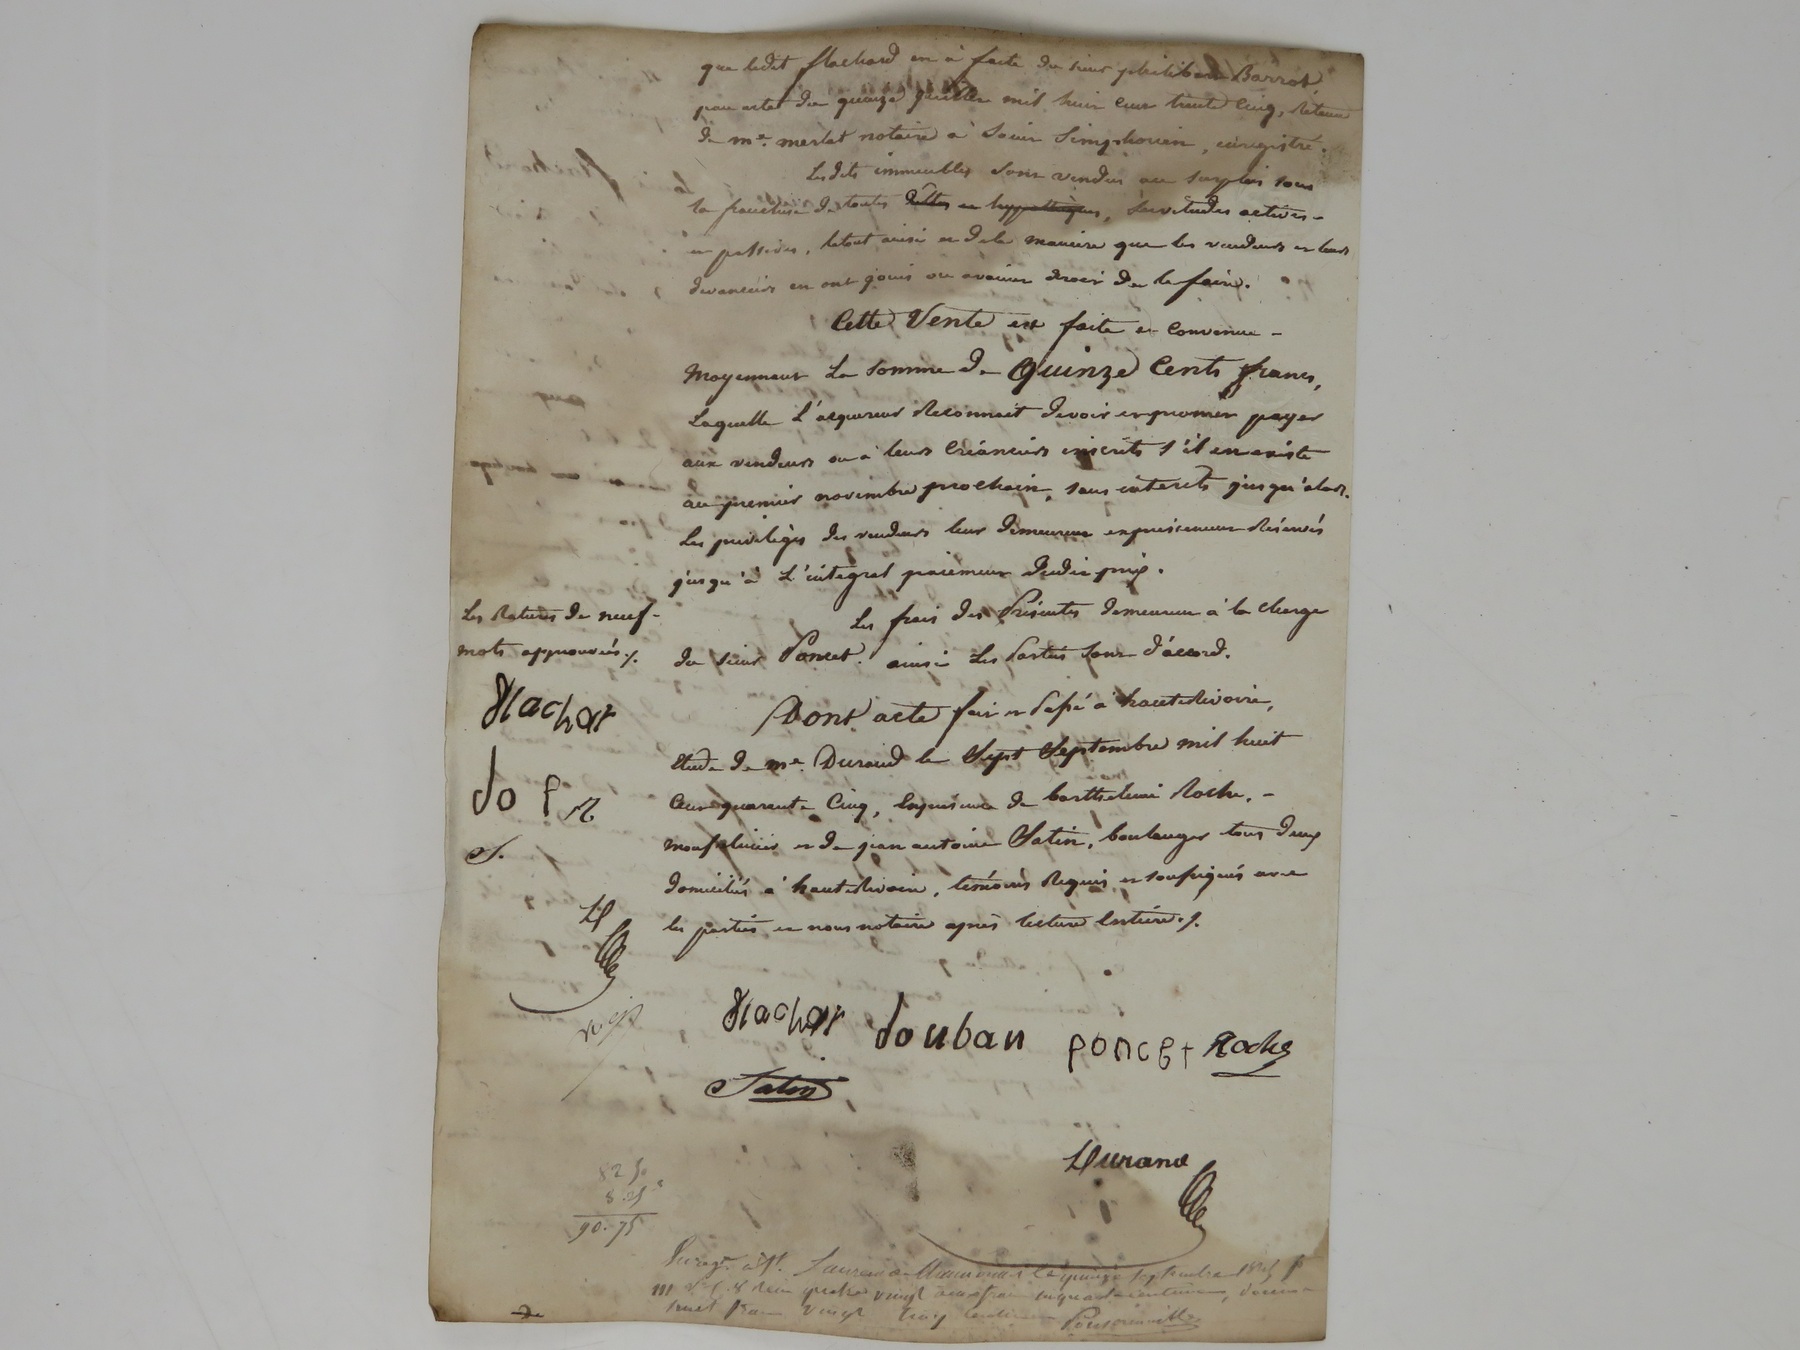 que ledit flachard en a faite du sieur philibert Barrot,
par acte du quinze juillet mil huit cent trente cinq, Retenu
de me. merlat notaire à Saint Simphorien, enregistré.
Lesdits immeubles sont vendus au surplus sous
la franchise de toutes dettes et hypothèques, servitudes actives -
et passives, letout ainsi et de la manière que les vendeurs et leurs
devanciers en ont joui ou avaient droit de le faire.
Cette Vente est faite et convenue -
Moyennant La Somme de Quinze Cents francs,
Laquelle L'acquereur Reconnait devoir et promet payer
aux vendeurs ou à leurs Créanciers inscrits s'il en existe
au premier novembre prochain, sans interets jusqu'alors.
Les privilèges des vendeurs leur demeurent expressement Réservés
jusqu'à L'intégral paiement dudit prix.
Les frais des Présentes demeurent à la charge
du sieur Poncet. ainsi Les Parties sont d'accord.
Les Ratures de neuf -
mots approuvées ./.
Dont acte fait et Passé à hauterivoire,
Etude de me. Durand le Sept Septembre mil huit
Cent quarante Cinq, En présence de barthelemi Roche, -
et de jean antoine Satin, boulanger tous deux
domiciliés à hauterivoire, témoins Requis et soussignés avec
les parties et nous notaire après lecture Entière ./.
flachar
do p R
S.
D
flachar douban poncet Roche
Satin
Durand
82 50
8 25
90.75
Enregé. à St. Laurent de Chamousset le quinze septembre 1845 f
quatre vingt deux francs cinquante centimes, décime
huit francs vingt cinq centimes
De